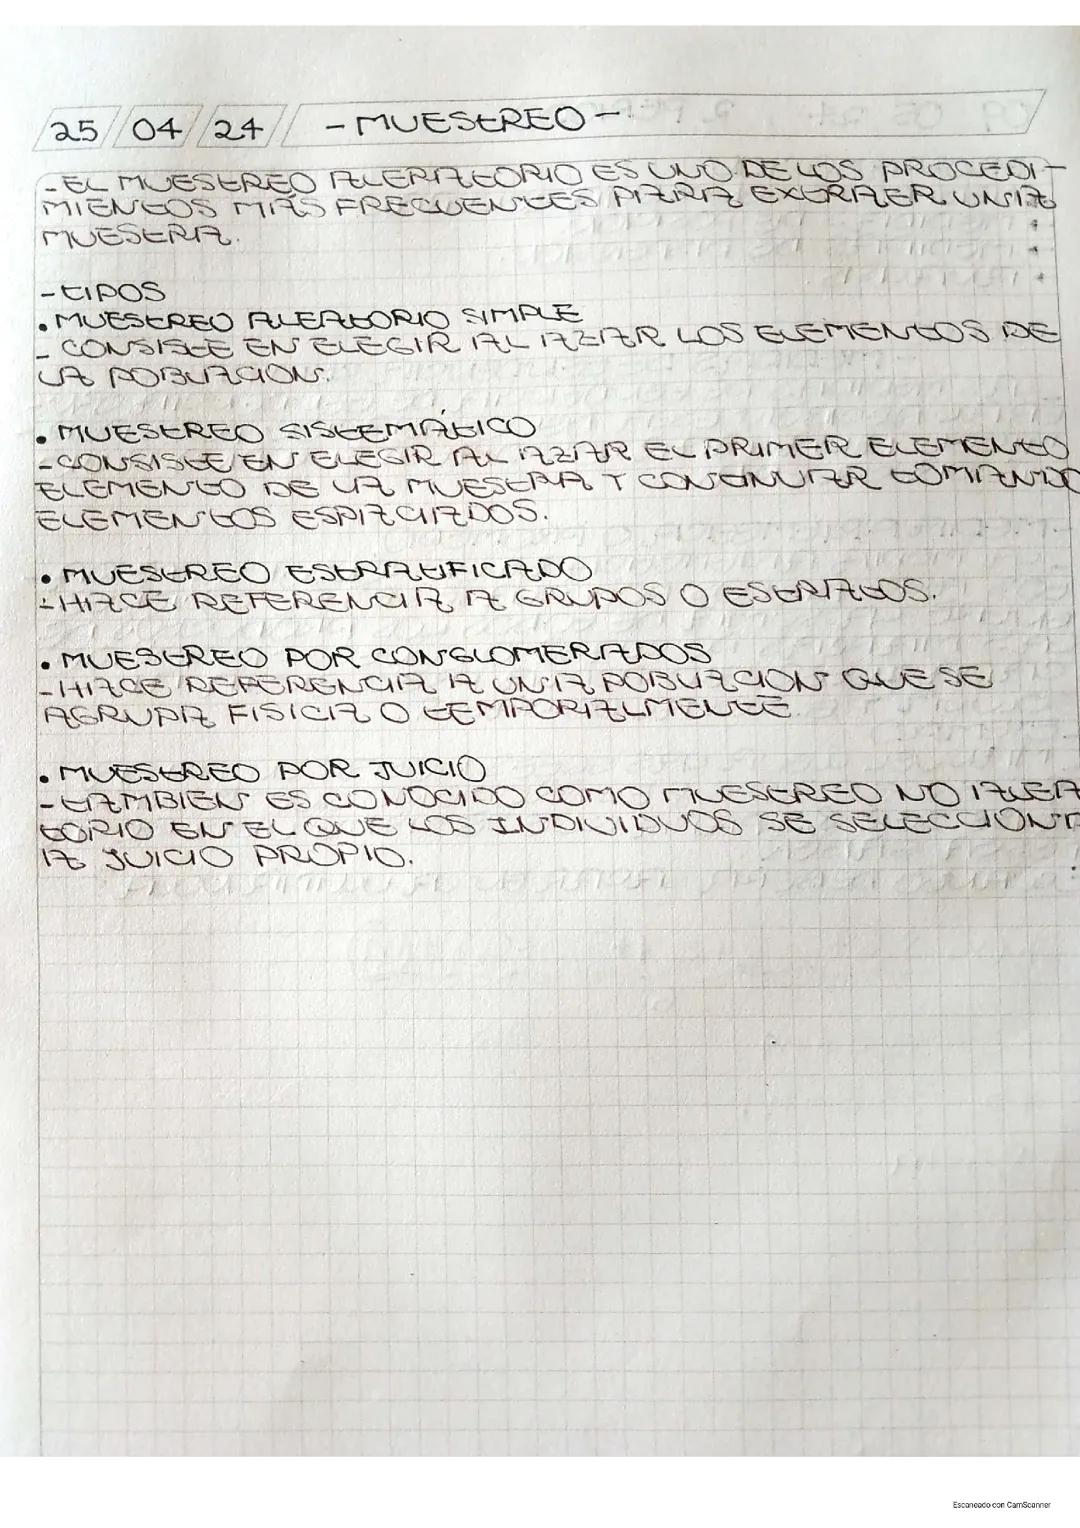 25 / 04 / 24 - MUESTREO -
- EL MUESTREO ALEATORIO ES UNO DE LOS PROCEDI-
MIENTOS MAS FRECUENTES PARA EXTRAER UNA
MUESTRA.
- TIPOS
• MUESTREO ALEATORIO SIMPLE
- CONSISTE EN ELEGIR AL AZAR LOS ELEMENTOS DE
LA POBLACION.
• MUESTREO SISTEMÁTICO
- CONSISTE EN ELEGIR AL AZAR EL PRIMER ELEMENTO
ELEMENTO DE LA MUESTRA Y CONTINUAR TOMANDO
ELEMENTOS ESPACIADOS.
• MUESTREO ESTRATIFICADO
- HACE REFERENCIA A GRUPOS O ESTRATOS.
• MUESTREO POR CONGLOMERADOS
- HACE REFERENCIA A UNA POBLACION QUE SE
AGRUPA FISICA O TEMPORALMENTE
• MUESTREO POR JUICIO
- TAMBIEN ES CONOCIDO COMO MUESTREO NO ALEA
TORIO EN EL QUE LOS INDIVIDUOS SE SELECCIONA
A JUICIO PROPIO.
Escaneado con CamScanner